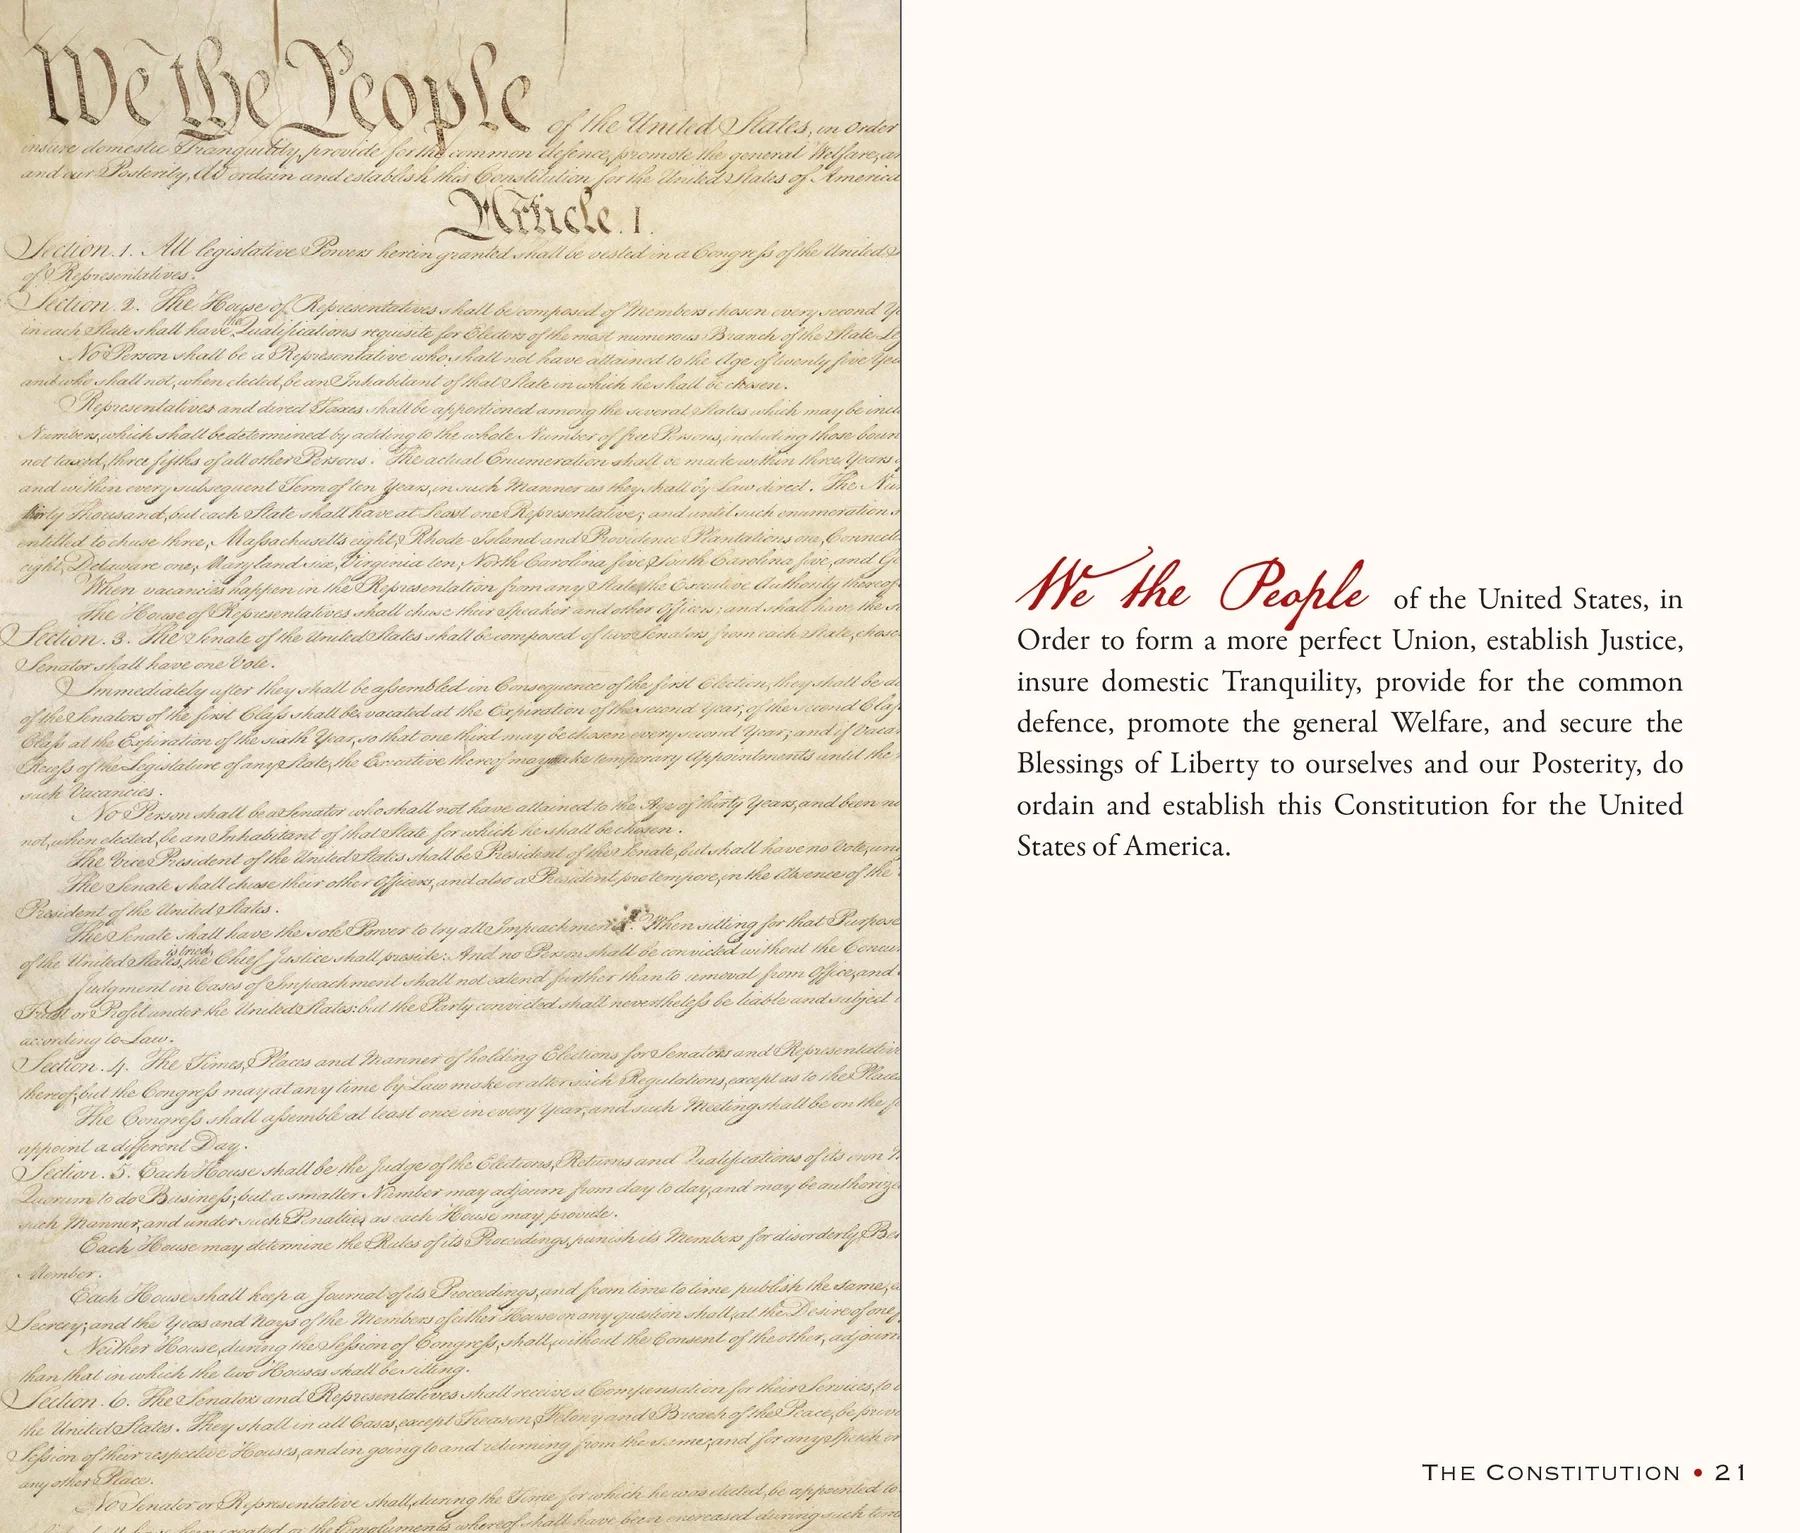 We the People of the United States, in Order
insure domestic Tranquility, provide for the common defence, promote the general Welfare, an
and our Posterity, do ordain and establish this Constitution for the United States of America
Article. I.
Section. 1. All legislative Powers herein granted shall be vested in a Congress of the United S
of Representatives.
Section. 2. The House of Representatives shall be composed of Members chosen every second Ye
in each State shall have the Qualifications requisite for Electors of the most numerous Branch of the State Leg
No Person shall be a Representative who shall not have attained to the Age of twenty five Yea
and who shall not, when elected, be an Inhabitant of that State in which he shall be chosen.
Representatives and direct Taxes shall be apportioned among the several States which may be inclu
Numbers, which shall be determined by adding to the whole Number of free Persons, including those boun
not taxed, three fifths of all other Persons. The actual Enumeration shall be made within three Years
and within every subsequent Term of ten Years, in such Manner as they shall by Law direct. The Num
thirty Thousand, but each State shall have at Least one Representative; and until such enumeration s
entitled to chuse three, Massachusetts eight, Rhode-Island and Providence Plantations one, Connecti
eight, Delaware one, Maryland six, Virginia ten, North Carolina five, South Carolina five, and Ge
When vacancies happen in the Representation from any State, the Executive Authority thereof
The House of Representatives shall chuse their Speaker and other Officers; and shall have the s
Section. 3. The Senate of the United States shall be composed of two Senators from each State, chose
Senator shall have one Vote.
Immediately after they shall be assembled in Consequence of the first Election, they shall be di
of the Senators of the first Class shall be vacated at the Expiration of the second Year, of the second Clas
Class at the Expiration of the sixth Year, so that one third may be chosen every second Year; and if Vaca
Recess of the Legislature of any State, the Executive thereof may make temporary Appointments until the
such Vacancies.
No Person shall be a Senator who shall not have attained to the Age of thirty Years, and been ni
not, when elected, be an Inhabitant of that State for which he shall be chosen.
The Vice President of the United States shall be President of the Senate, but shall have no Vote, unl
The Senate shall chuse their other Officers, and also a President pro tempore, in the Absence of the
President of the United States.
The Senate shall have the sole Power to try all Impeachments. When sitting for that Purpose
of the United States is tried, the Chief Justice shall preside: And no Person shall be convicted without the Concur
Judgment in Cases of Impeachment shall not extend further than to removal from Office, and
Trust or Profit under the United States: but the Party convicted shall nevertheless be liable and subject
according to Law.
Section. 4. The Times, Places and Manner of holding Elections for Senators and Representative
thereof; but the Congress may at any time by Law make or alter such Regulations, except as to the Places
The Congress shall assemble at least once in every Year, and such Meeting shall be on the f
appoint a different Day.
Section. 5. Each House shall be the Judge of the Elections, Returns and Qualifications of its own M
Quorum to do Business; but a smaller Number may adjourn from day to day, and may be authorize
such Manner, and under such Penalties as each House may provide.
Each House may determine the Rules of its Proceedings, punish its Members for disorderly Be
Member.
Each House shall keep a Journal of its Proceedings, and from time to time publish the same, e
Secrecy; and the Yeas and Nays of the Members of either House on any question shall, at the Desire of one
Neither House, during the Session of Congress, shall, without the Consent of the other, adjourn
than that in which the two Houses shall be sitting.
Section. 6. The Senators and Representatives shall receive a Compensation for their Services, to
the United States. They shall in all Cases, except Treason, Felony and Breach of the Peace, be priv
Session of their respective Houses, and in going to and returning from the same; and for any Speech or
any other Place.
No Senator or Representative shall, during the Time for which he was elected, be appointed to
shall have been created, or the Emoluments whereof shall have been encreased during such time
We the People of the United States, in
Order to form a more perfect Union, establish Justice,
insure domestic Tranquility, provide for the common
defence, promote the general Welfare, and secure the
Blessings of Liberty to ourselves and our Posterity, do
ordain and establish this Constitution for the United
States of America.
THE CONSTITUTION • 21